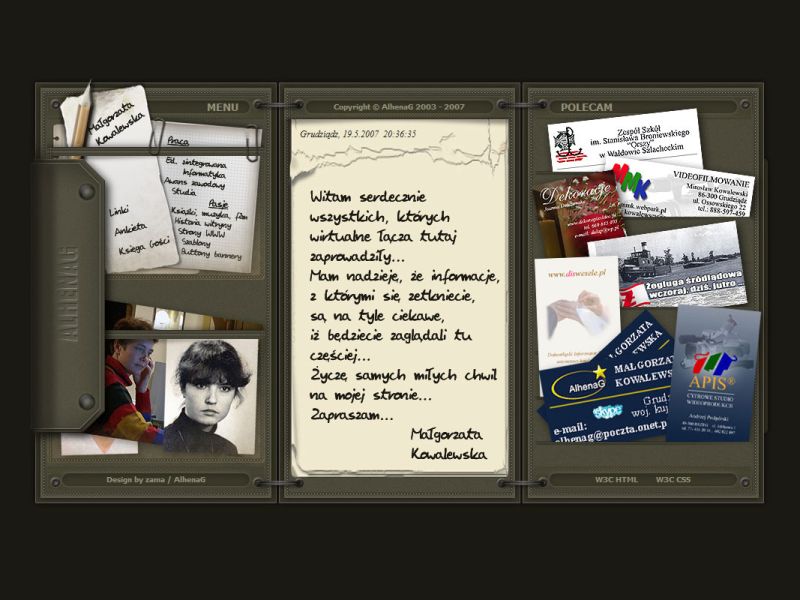 MENU
Małgorzata
Kowalewska
Praca
Ed. zintegrowana
Informatyka
Awans zawodowy
Studia
Pasje
Książki, muzyka, film
Historia witryny
Strony WWW
Szablony
Buttony bannery
Linki
Ankieta
Księga Gości
ALHENAG
Design by zama / AlhenaG
Copyright © AlhenaG 2003 - 2007
Grudziądz, 19.5.2007 20:36:35
Witam serdecznie
wszystkich, których
wirtualne łącza tutaj
zaprowadziły...
Mam nadzieję, że informacje,
z którymi się zetkniecie,
są na tyle ciekawe,
iż będziecie zaglądali tu
częściej...
Życzę samych miłych chwil
na mojej stronie...
Zapraszam...
Małgorzata
Kowalewska
POLECAM
Zespół Szkół
im. Stanisława Broniewskiego
"Orszy"
w Wałdowie Szlacheckim
Dekoracje
MMK
VIDEOFILMOWANIE
Mirosław Kowalewski
86-300 Grudziądz
ul. Ossowskiego 22
tel.: 888-597-459
Żegluga śródlądowa
wczoraj, dziś, jutro...
www.diswesele.pl
MAŁGORZATA
KOWALEWSKA
AlhenaG
skype
e-mail:
alhenag@poczta.onet.p
APIS®
CYFROWE STUDIO
WIDEOPRODUKCJI
Andrzej Podgórski
W3C HTML W3C CSS